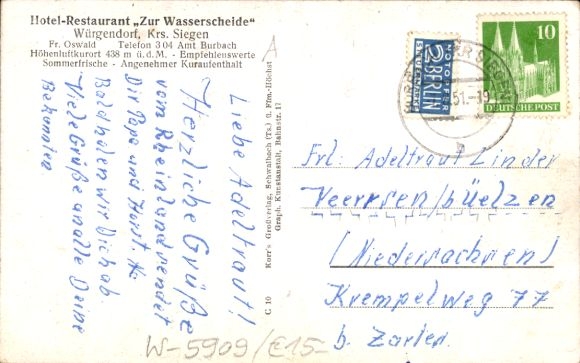 Hotel-Restaurant „Zur Wasserscheide"
Würgendorf, Krs. Siegen
Fr. Oswald Telefon 304 Amt Burbach
Höhenluftkurort 438 m ü.d.M. - Empfehlenswerte
Sommerfrische - Angenehmer Kuraufenthalt
Liebe Adeltraut!
Herzliche Grüße
vom Rheinland sendet
Dir Papa und Horst
Bald holen wir Dich ab
Viele Grüße an alle Deine
Bekannten
Korr's Großverlag, Schwalbach (Ts.) ü. Ffm.-Höchst
Graph. Kunstanstalt, Bahnstr. 17
C 10
A
NOTOPFER
2 BERLIN
STEUERMARKE
10
DEUTSCHE POST
SIEGEN
51.-19
b
Frl. Adeltraut Linder
Veerssen/b Uelzen
(Niedersachsen)
Krempelweg 77
b. Zarler.
W-5909/€15-